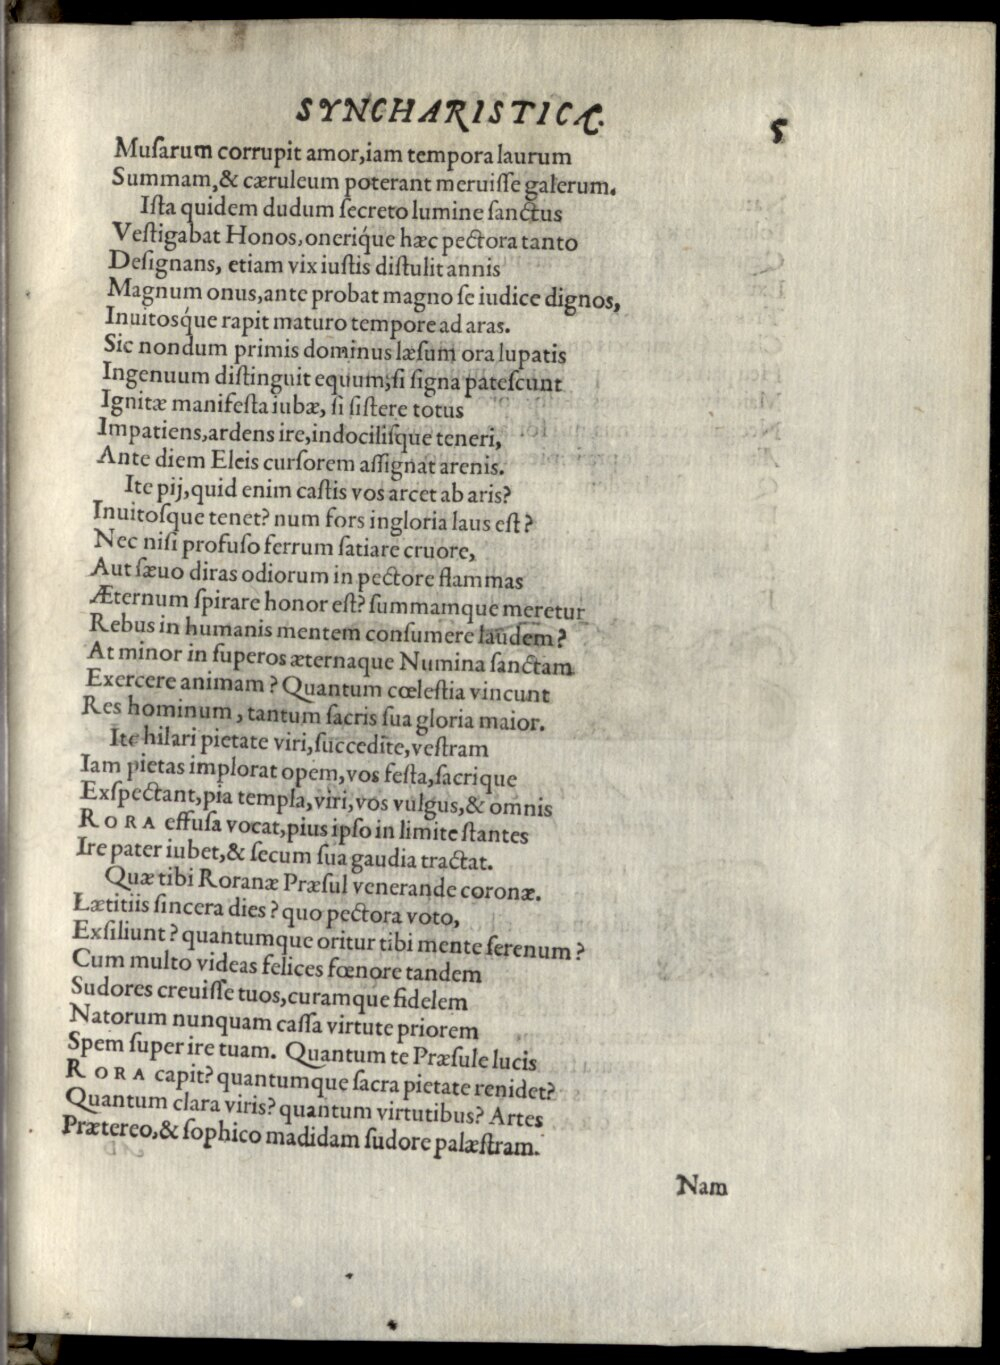 SYNCHARISTICÆ. 5
Muſarum corrupit amor,iam tempora laurum
Summam,& cæruleum poterant meruiſſe galerum.
Iſta quidem dudum ſecreto lumine ſanctus
Veſtigabat Honos,oneriq́ue hæc pectora tanto
Deſignans, etiam vix iuſtis diſtulit annis
Magnum onus,ante probat magno ſe iudice dignos,
Inuitosq́ue rapit maturo tempore ad aras.
Sic nondum primis dominus læſum ora lupatis
Ingenuum diſtinguit equum,ſi ſigna pateſcunt
Ignitæ manifeſta iubæ, ſi ſiſtere totus
Impatiens,ardens ire,indociliſque teneri,
Ante diem Eleis curſorem aſſignat arenis.
Ite pij,quid enim caſtis vos arcet ab aris?
Inuitoſque tenet? num fors ingloria laus eſt?
Nec niſi profuſo ferrum ſatiare cruore,
Aut ſæuo diras odiorum in pectore flammas
Æternum ſpirare honor eſt? ſummamque meretur
Rebus in humanis mentem conſumere laudem?
At minor in ſuperos æternaque Numina ſanctam
Exercere animam? Quantum cœleſtia vincunt
Res hominum, tantum ſacris ſua gloria maior.
Ite hilari pietate viri,ſuccedite,veſtram
Iam pietas implorat opem,vos feſta,ſacrique
Exſpectant,pia templa,viri,vos vulgus,& omnis
RORA effuſa vocat,pius ipſo in limite ſtantes
Ire pater iubet,& ſecum ſua gaudia tractat.
Quæ tibi Roranæ Præſul venerande coronæ.
Lætitiis ſincera dies? quo pectora voto,
Exſiliunt? quantumque oritur tibi mente ſerenum?
Cum multo videas felices fœnore tandem
Sudores creuiſſe tuos,curamque fidelem
Natorum nunquam caſſa virtute priorem
Spem ſuper ire tuam. Quantum te Præſule lucis
RORA capit? quantumque ſacra pietate renidet?
Quantum clara viris? quantum virtutibus? Artes
Prætereo,& ſophico madidam ſudore palæſtram.
Nam